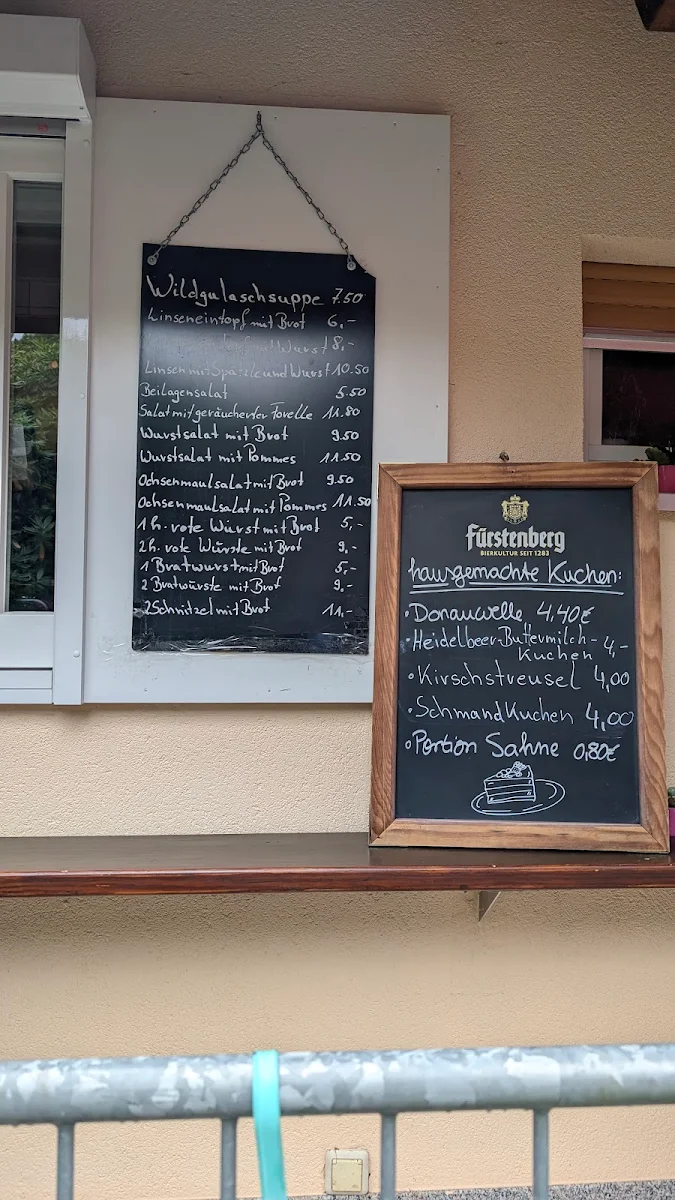 Wildgulaschsuppe 7.50
Linseneintopf mit Brot 6,-
mit Wurst 8,-
Linsen mit Spätzle und Wurst 10.50
Beilagensalat 5.50
Salat mit geräucherter Forelle 11.80
Wurstsalat mit Brot 9.50
Wurstsalat mit Pommes 11.50
Ochsenmaulsalat mit Brot 9.50
Ochsenmaulsalat mit Pommes 11.50
1 h. rote Wurst mit Brot 5,-
2 h. rote Würste mit Brot 9,-
1 Bratwurst mit Brot 5,-
2 Bratwürste mit Brot 9,-
2 Schnitzel mit Brot 11,-
Fürstenberg
BIERKULTUR SEIT 1283
hausgemachte Kuchen:
• Donauwelle 4,40€
• Heidelbeer-Buttermilch- 4,-
Kuchen
• Kirschstreusel 4,00
• SchmandKuchen 4,00
• Portion Sahne 0,80€